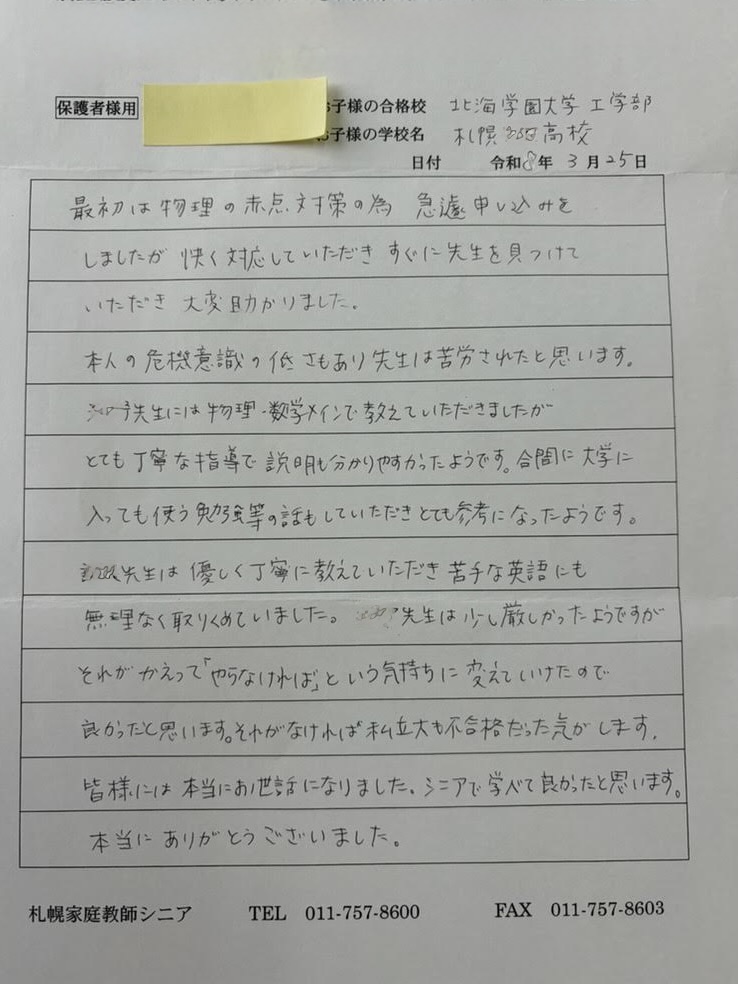 保護者様用
お子様の合格校 北海学園大学 工学部
お子様の学校名 札幌 高校
日付 令和8年 3月25日
最初は物理の赤点対策の為 急遽申し込みを
しましたが 快く対応していただき すぐに先生を見つけて
いただき 大変助かりました。
本人の危機意識の低さもあり先生は苦労されたと思います。
先生には物理・数学メインで教えていただきましたが
とても丁寧な指導で説明も分かりやすかったようです。合間に大学に
入っても使う勉強等の話もしていただきとても参考になったようです。
先生は優しく丁寧に教えていただき 苦手な英語にも
無理なく取りくめていました。 先生は少し厳しかったようですが
それが かえって「やらなければ」という気持ちに変えていけたので
良かったと思います。それがなければ私立大も不合格だった気がします。
皆様には本当にお世話になりました。シニアで学べて良かったと思います。
本当にありがとうございました。
札幌家庭教師シニア TEL 011-757-8600 FAX 011-757-8603